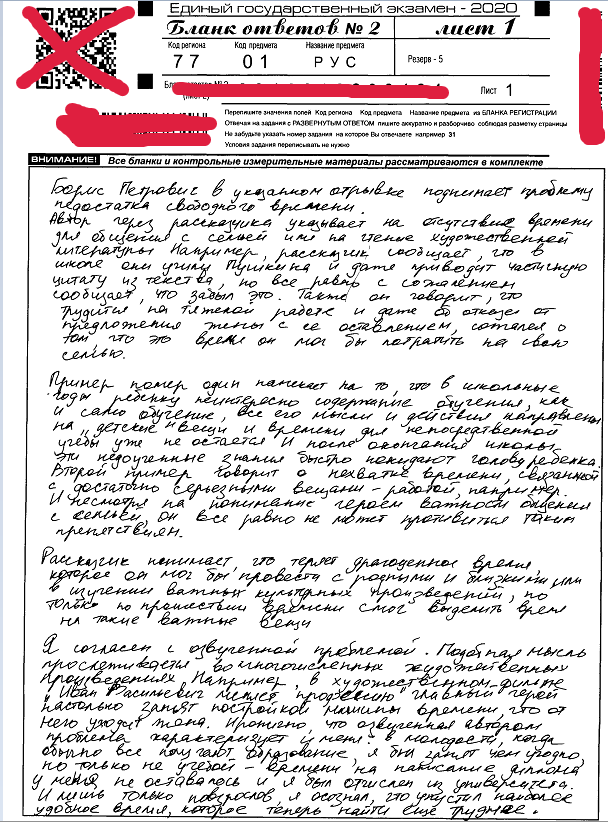 Единый государственный экзамен - 2020
Бланк ответов № 2
лист 1
Код региона Код предмета Название предмета
77 01 РУС
Резерв - 5
Лист 1
Перепишите значения полей Код региона Код предмета Название предмета из БЛАНКА РЕГИСТРАЦИИ
Отвечая на задания с РАЗВЕРНУТЫМ ОТВЕТОМ пишите аккуратно и разборчиво соблюдая разметку страницы
Не забудьте указать номер задания на которое Вы отвечаете например 31
Условия задания переписывать не нужно
ВНИМАНИЕ! Все бланки и контрольные измерительные материалы рассматриваются в комплекте
Борис Петрович в указанном отрывке поднимает проблему
недостатка свободного времени.
Автор через рассказчика указывает на отсутствие времени
для общения с семьей или на чтение художественной
литературы Например, рассказчик сообщает, что в
школе они учили Пушкина и даже приводит частичную
цитату из текста, но все равно с сожалением
сообщает, что забыл это. Также он говорит, что
трудится на тяжелой работе и даже от
предложения жены с ее оставлением,
том что это время он мог бы потратить на свою
семью.
Пример номер один намекает на то, что в школьные
годы ребенку неинтересно содержание обучения, как
и само обучение, все его мысли и действия направлены
на "детские" вещи и времени для непосредственной
учебы уже не остается И после окончания школы
эти недоученные знания быстро покидают голову ребенка.
Второй пример говорит о нехватке времени, связанной
с достаточно серьезными вещами - работой, например.
И несмотря на понимание героем важности общения
с семьей он все равно не может противиться таким
препятствиям.
Рассказчик понимает, что теряет драгоценное время,
которое он мог бы провести с родными и близкими, или
в изучении важных культурных произведений, но
только по прошествии времени смог выделить время
на такие важные вещи
Я согласен с озвученной проблемой. Подобная мысль
прослеживается во многочисленных художественных
произведениях Например, в художественном фильме
"Иван Васильевич меняет профессию" главный герой
настолько занят постройкой машины времени, что от
него уходит жена. Иронично, что озвученная автором
проблема характеризует и меня - в молодости, когда
обычно все получают образование, я был занят чем угодно,
но только не учебой - времени на написание диплома
у меня не оставалось и я был отчислен из университета.
И лишь только повзрослев, я осознал, что упустил наиболее
удобное время, которое теперь найти еще труднее.